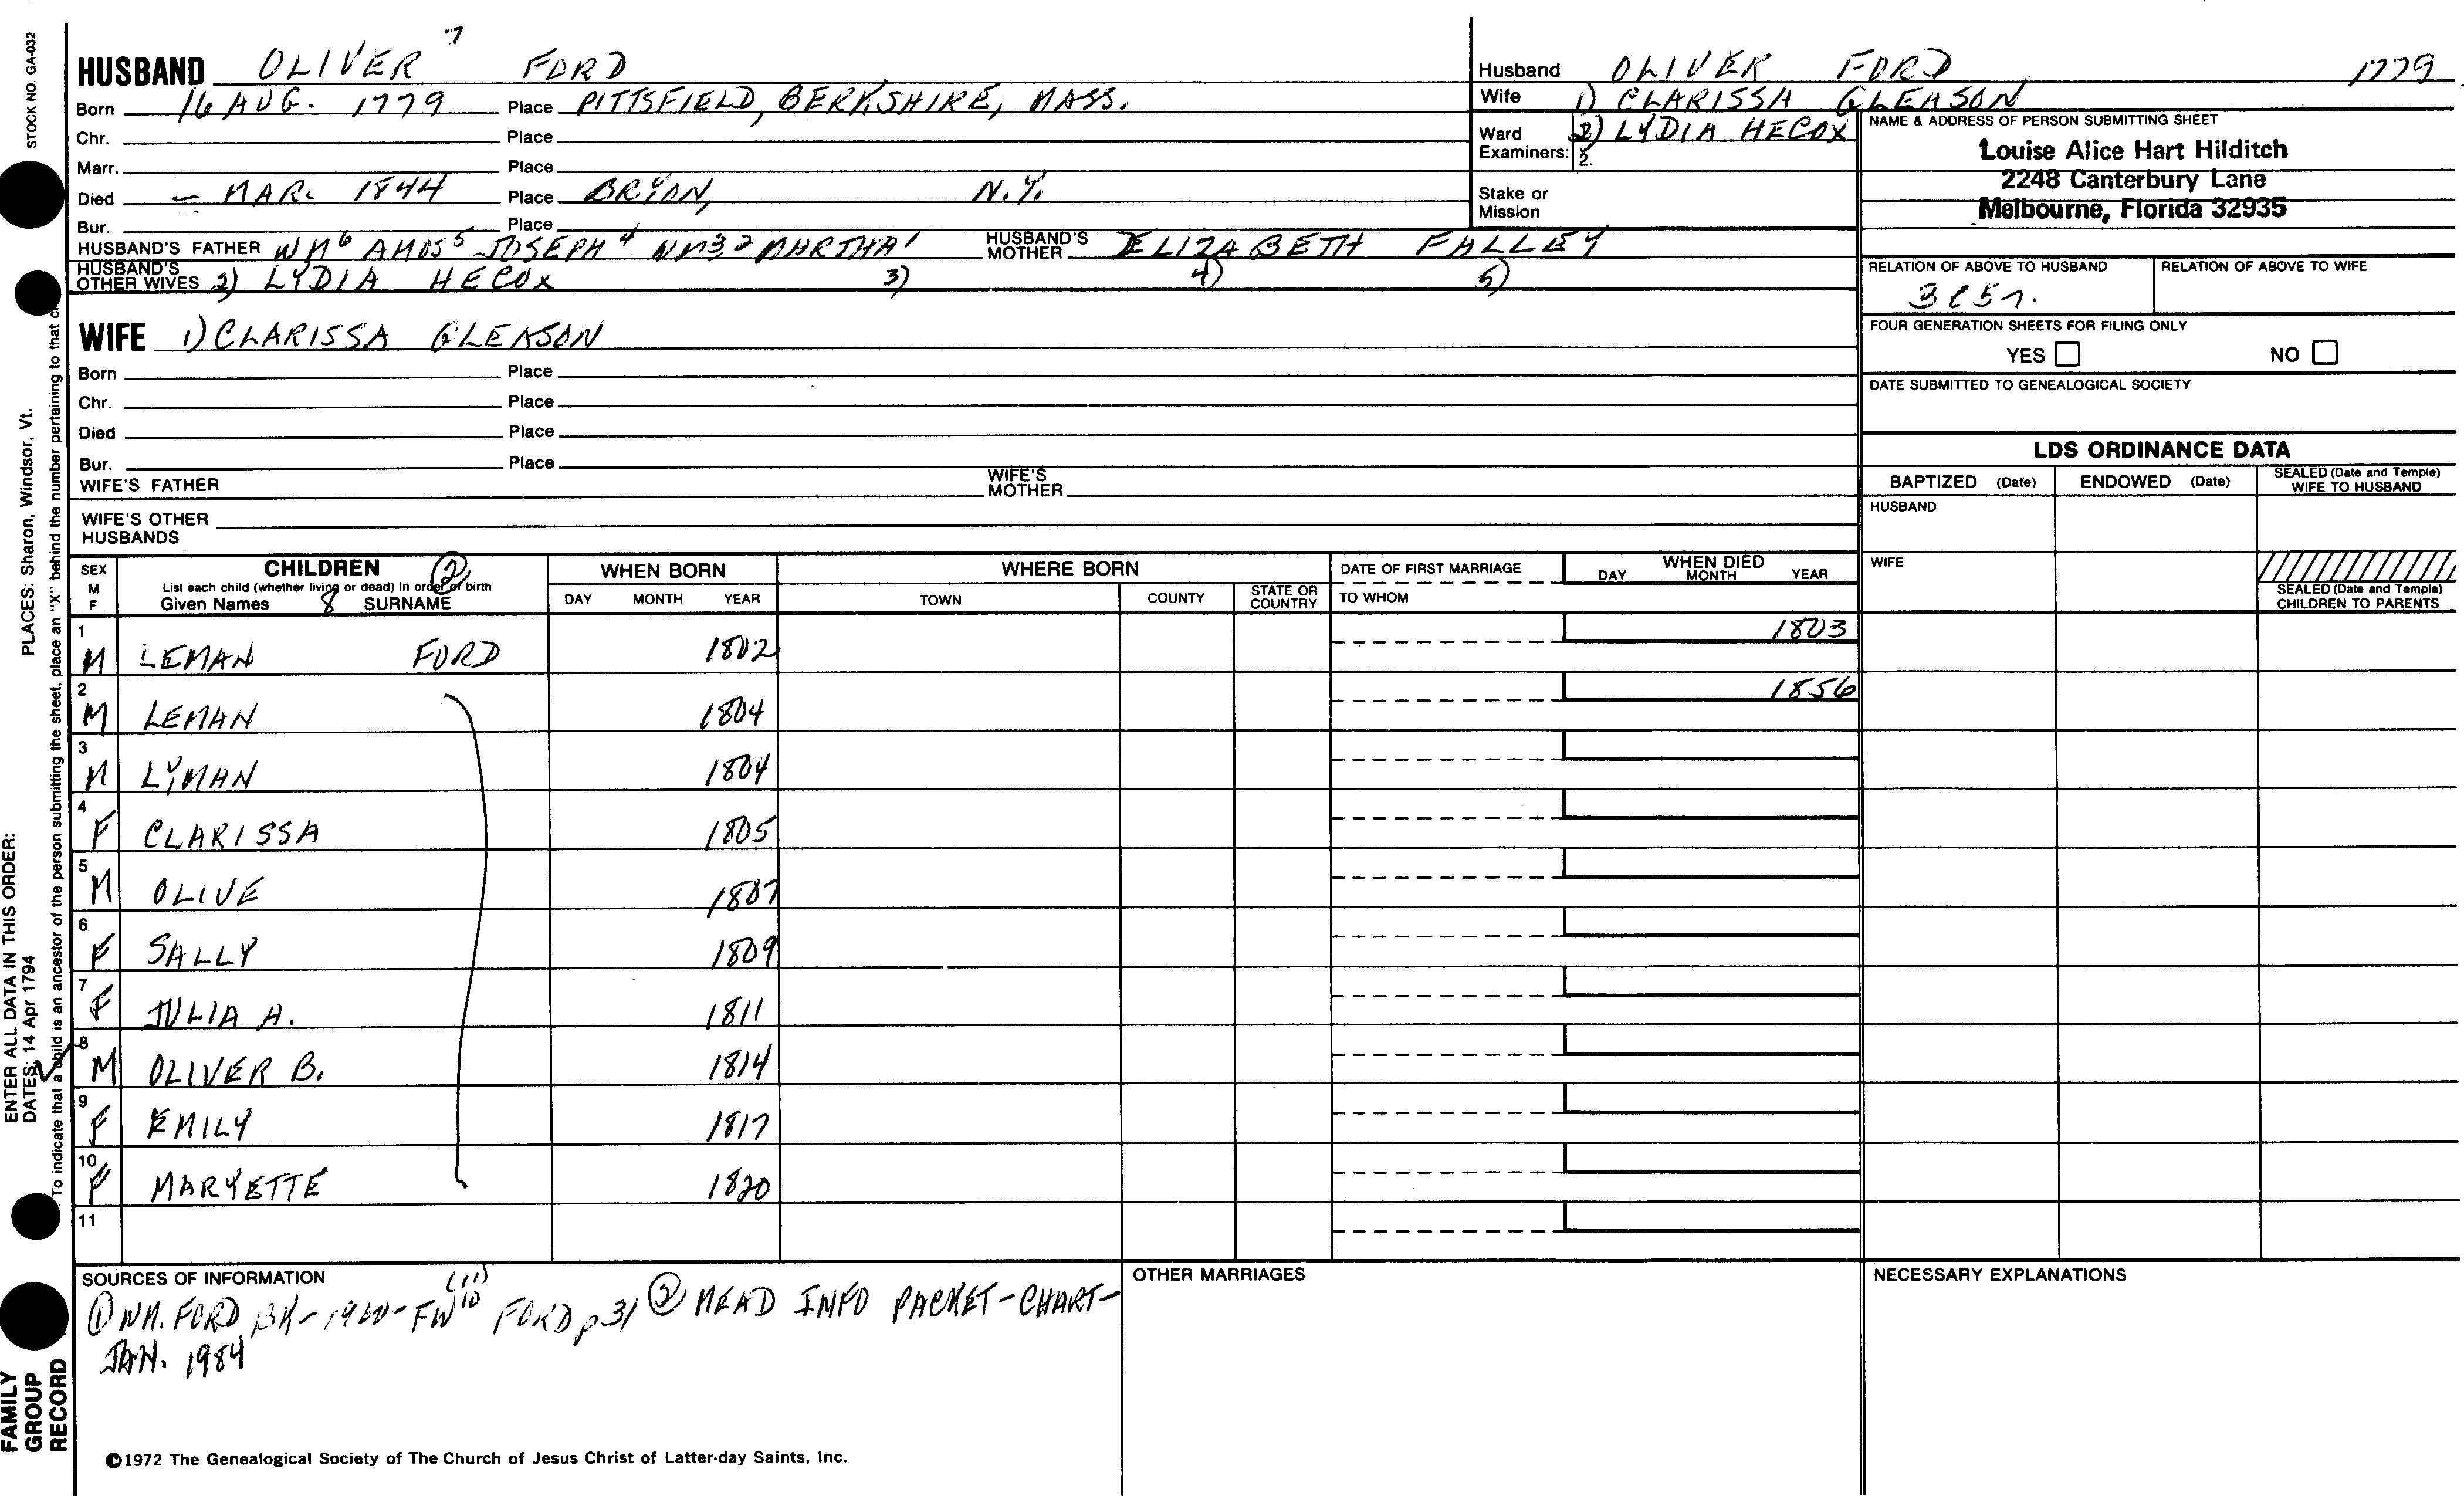 HUSBAND OLIVER 7 FORD
Born 16 AUG. 1779 Place PITTSFIELD, BERKSHIRE, MASS.
Chr. Place
Marr. Place
Died - MAR. 1844 Place BRYON, N.Y.
Bur. Place
HUSBAND'S FATHER WM 6 AMOS 5 JOSEPH 4 WM 3 2 MARTHA 1 HUSBAND'S MOTHER ELIZABETH FALLEY
HUSBAND'S OTHER WIVES 2) LYDIA HECOX 3) 4) 5)
WIFE 1) CLARISSA GLEASON
Born Place
Chr. Place
Died Place
Bur. Place
WIFE'S FATHER WIFE'S MOTHER
WIFE'S OTHER HUSBANDS
Husband OLIVER FORD 1779
Wife 1) CLARISSA GLEASON
Ward Examiners: 2) LYDIA HECOX
2.
Stake or Mission
NAME & ADDRESS OF PERSON SUBMITTING SHEET
Louise Alice Hart Hilditch
2248 Canterbury Lane
Melbourne, Florida 32935
RELATION OF ABOVE TO HUSBAND RELATION OF ABOVE TO WIFE
3C5
FOUR GENERATION SHEETS FOR FILING ONLY
YES NO
DATE SUBMITTED TO GENEALOGICAL SOCIETY
LDS ORDINANCE DATA
BAPTIZED (Date) ENDOWED (Date) SEALED (Date and Temple) WIFE TO HUSBAND
HUSBAND
WIFE
SEALED (Date and Temple) CHILDREN TO PARENTS
SEX M F CHILDREN 2 WHEN BORN WHERE BORN DATE OF FIRST MARRIAGE WHEN DIED
List each child (whether living or dead) in order of birth
Given Names 8 SURNAME DAY MONTH YEAR TOWN COUNTY STATE OR COUNTRY TO WHOM DAY MONTH YEAR
1 M LEMAN FORD 1802 1803
2 M LEMAN 1804 1856
3 M LYMAN 1804
4 F CLARISSA 1805
5 M OLIVE 1807
6 F SALLY 1809
7 F JULIA A. 1811
8 M OLIVER B. 1814
9 F EMILY 1817
10 F MARYETTE 1820
11
SOURCES OF INFORMATION (11) OTHER MARRIAGES NECESSARY EXPLANATIONS
1 WM. FORD BK- - FW 10 FORD p 31 2 MEAD INFO PACKET-CHART-
JAN. 1984
©1972 The Genealogical Society of The Church of Jesus Christ of Latter-day Saints, Inc.
STOCK NO. GA-032
PLACES: Sharon, Windsor, Vt.
ENTER ALL DATA IN THIS ORDER:
DATES: 14 Apr 1794
To indicate that a child is an ancestor of the person submitting the sheet, place an "X" behind the number pertaining to that
FAMILY
GROUP
RECORD